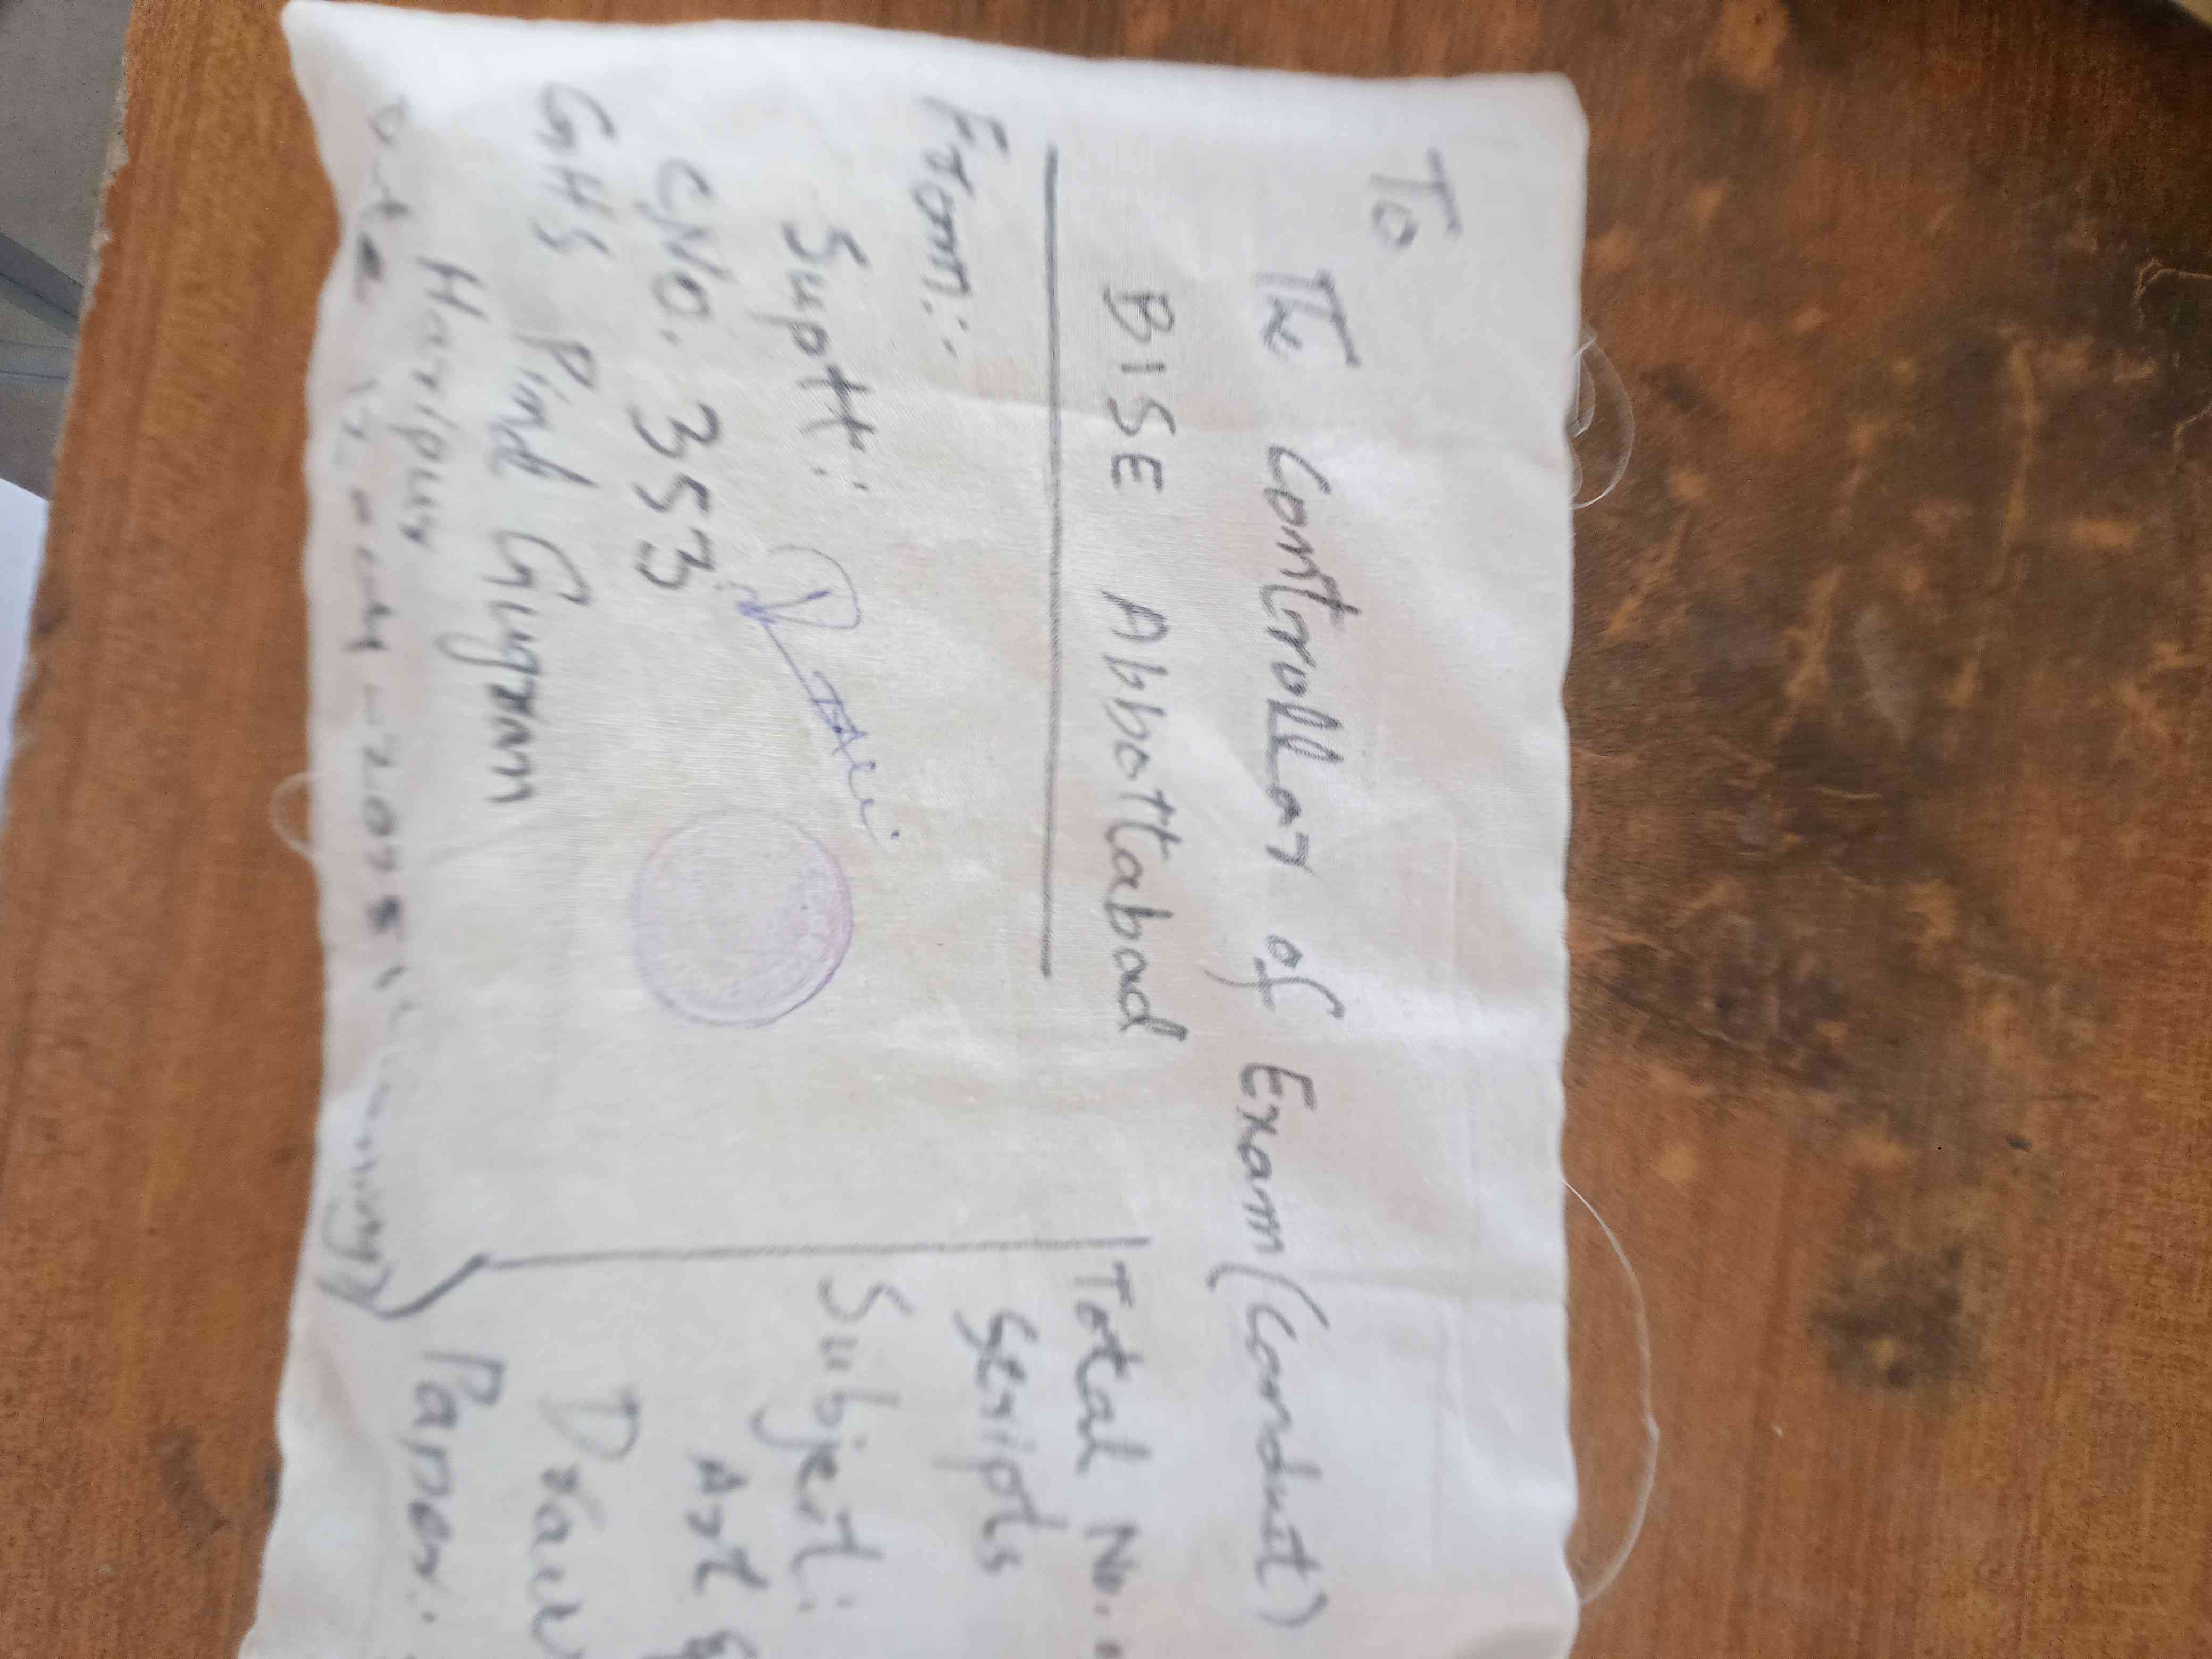 To
The Controllar of Exam (Conduct)
BISE Abbottabad
From:
Suptt:
CNo. 353
GHS Pind Gujran
Haripur
Total No.
Scripts
Subject:
Art &
Draw
Paper: